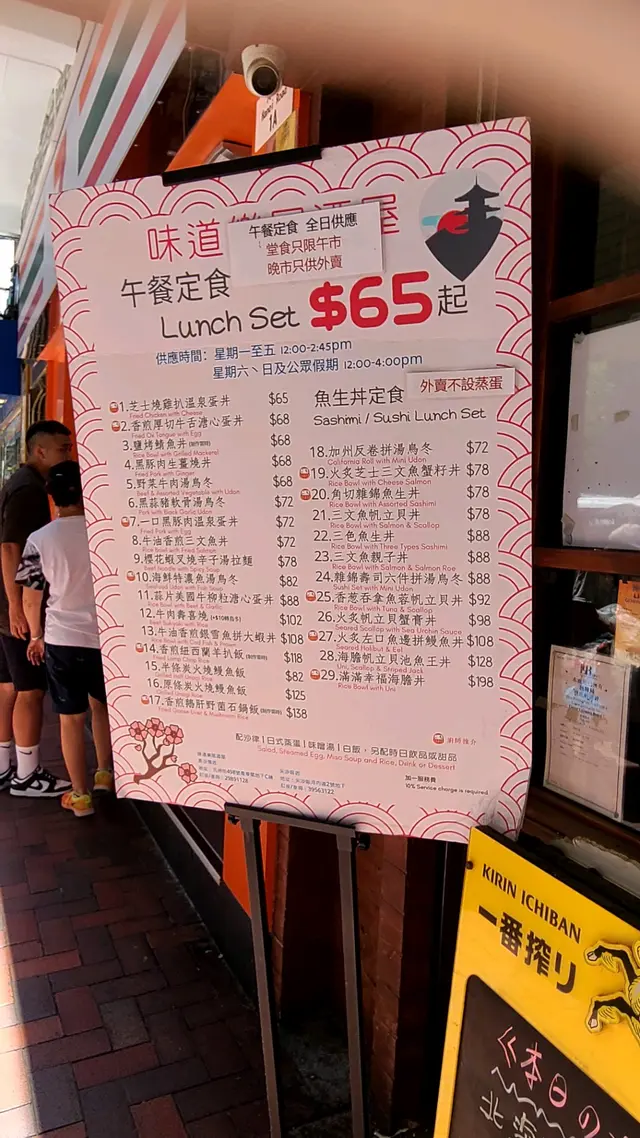 1A
味道
屋
午餐定食 全日供應
堂食只限午市
晚市只供外賣
午餐定食
Lunch Set $65起
供應時間：星期一至五 12:00-2:45pm
星期六、日及公眾假期 12:00-4:00pm
1.芝士燒雞扒溫泉蛋丼 $65
Fried Chicken with Cheese
2.香煎厚切牛舌溏心蛋丼 $68
Fried Ox Tongue with Egg
3.鹽烤鯖魚丼 $68
Rice Bowl with Grilled Mackerel
4.黑豚肉生薑燒丼 $68
Fried Pork with Ginger
5.野菜牛肉湯烏冬 $68
Beef & Assorted Vegetable with Udon
6.黑蒜豬軟骨湯烏冬 $72
Pork with Black Garlic Udon
7.一口黑豚肉溫泉蛋丼 $72
Fried Pork with Egg
8.牛油香煎三文魚丼 $72
Rice Bowl with Fried Salmon
9.櫻花蝦叉燒辛子湯拉麵 $78
Beef Noodle with Spicy Soup
10.海鮮特濃魚湯烏冬 $82
11.蒜片美國牛柳粒溏心蛋丼 $88
Rice Bowl with Beef & Garlic
12.牛肉壽喜燒 $102
Beef Sukiyaki with Rice
13.牛油香煎銀雪魚拼大蝦丼 $108
14.香煎紐西蘭羊扒飯 $118
Fried Lamb Chop Rice
15.半條炭火燒鰻魚飯 $82
Grilled Half Unagi Rice
16.原條炭火燒鰻魚飯 $125
Grilled Unagi Rice
17.香煎鵝肝野菌石鍋飯 $138
Fried Goose Liver & Mushroom Rice
外賣不設蒸蛋
魚生丼定食
Sashimi / Sushi Lunch Set
18.加州反卷拼湯烏冬 $72
California Roll with Mini Udon
19.火炙芝士三文魚蟹籽丼 $78
Rice Bowl with Cheese Salmon
20.角切雜錦魚生丼 $78
Rice Bowl with Assorted Sashimi
21.三文魚帆立貝丼 $78
Rice Bowl with Salmon & Scallop
22.三色魚生丼 $88
Rice Bowl with Three Types Sashimi
23.三文魚親子丼 $88
Rice Bowl with Salmon & Salmon Roe
24.雜錦壽司六件拼湯烏冬 $88
Sushi Set with Mini Udon
25.香葱吞拿魚蓉帆立貝丼 $92
Rice Bowl with Tuna & Scallop
26.火炙帆立貝蟹膏丼 $98
Seared Scallop with Sea Urchin Sauce
27.火炙左口魚邊拼鰻魚丼 $108
Seared Halibut & Eel
28.海膽帆立貝池魚王丼 $128
Uni, Scallop & Striped Jack
29.滿滿幸福海膽丼 $198
Rice Bowl with Uni
廚師推介
配沙律 | 日式蒸蛋 | 味噌湯 | 白飯，另配時日飲品或甜品
Salad, Steamed Egg, Miso Soup and Rice, Drink or Dessert
加一服務費
10% Service charge is required
KIRIN ICHIBAN
一番搾り
本日の
北海